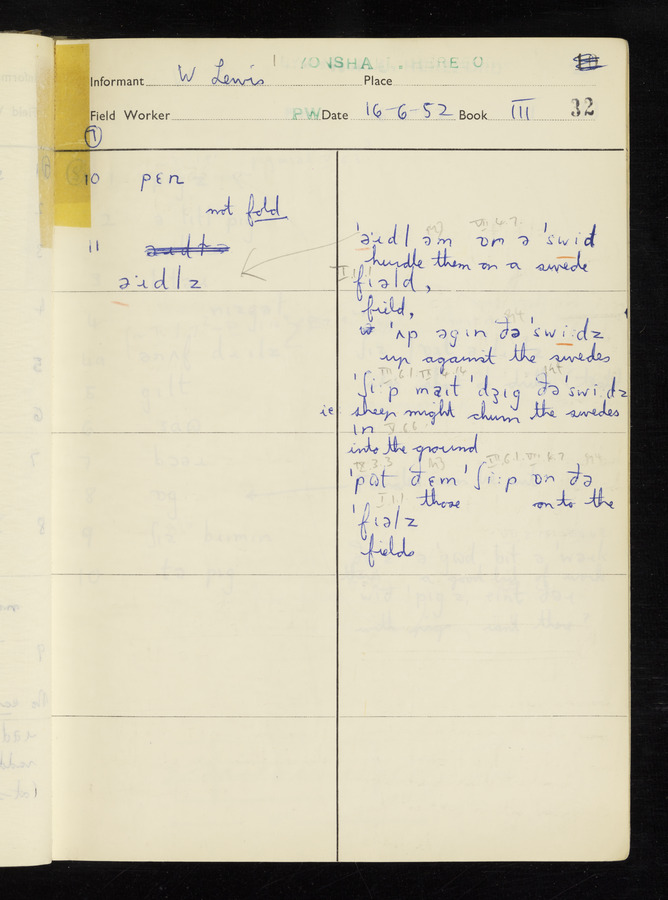 Informant W Lewis Place
Field Worker PW Date 16-6-52 Book III 32
7
10 pɛn
not fold
11
əidlz
'əidl əm ɒn ə 'swid
hurdle them on a swede
fiəld,
field,
'ʌp əgɪn ðə 'swi:dz
up against the swedes
'ʃi:p maɪt 'dʒɪg ðə 'swi.dz
ie: sheep might churn the swedes
ɪn
into the ground
'pɒt ðɛm 'ʃi:p ɒn ðə
those onto the
'fiəlz
fields